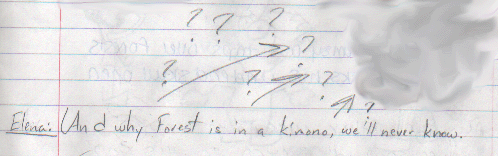 ? ? ?
?
? ? ?
?
Elena: (And why Forest is in a kimono, we'll never know.